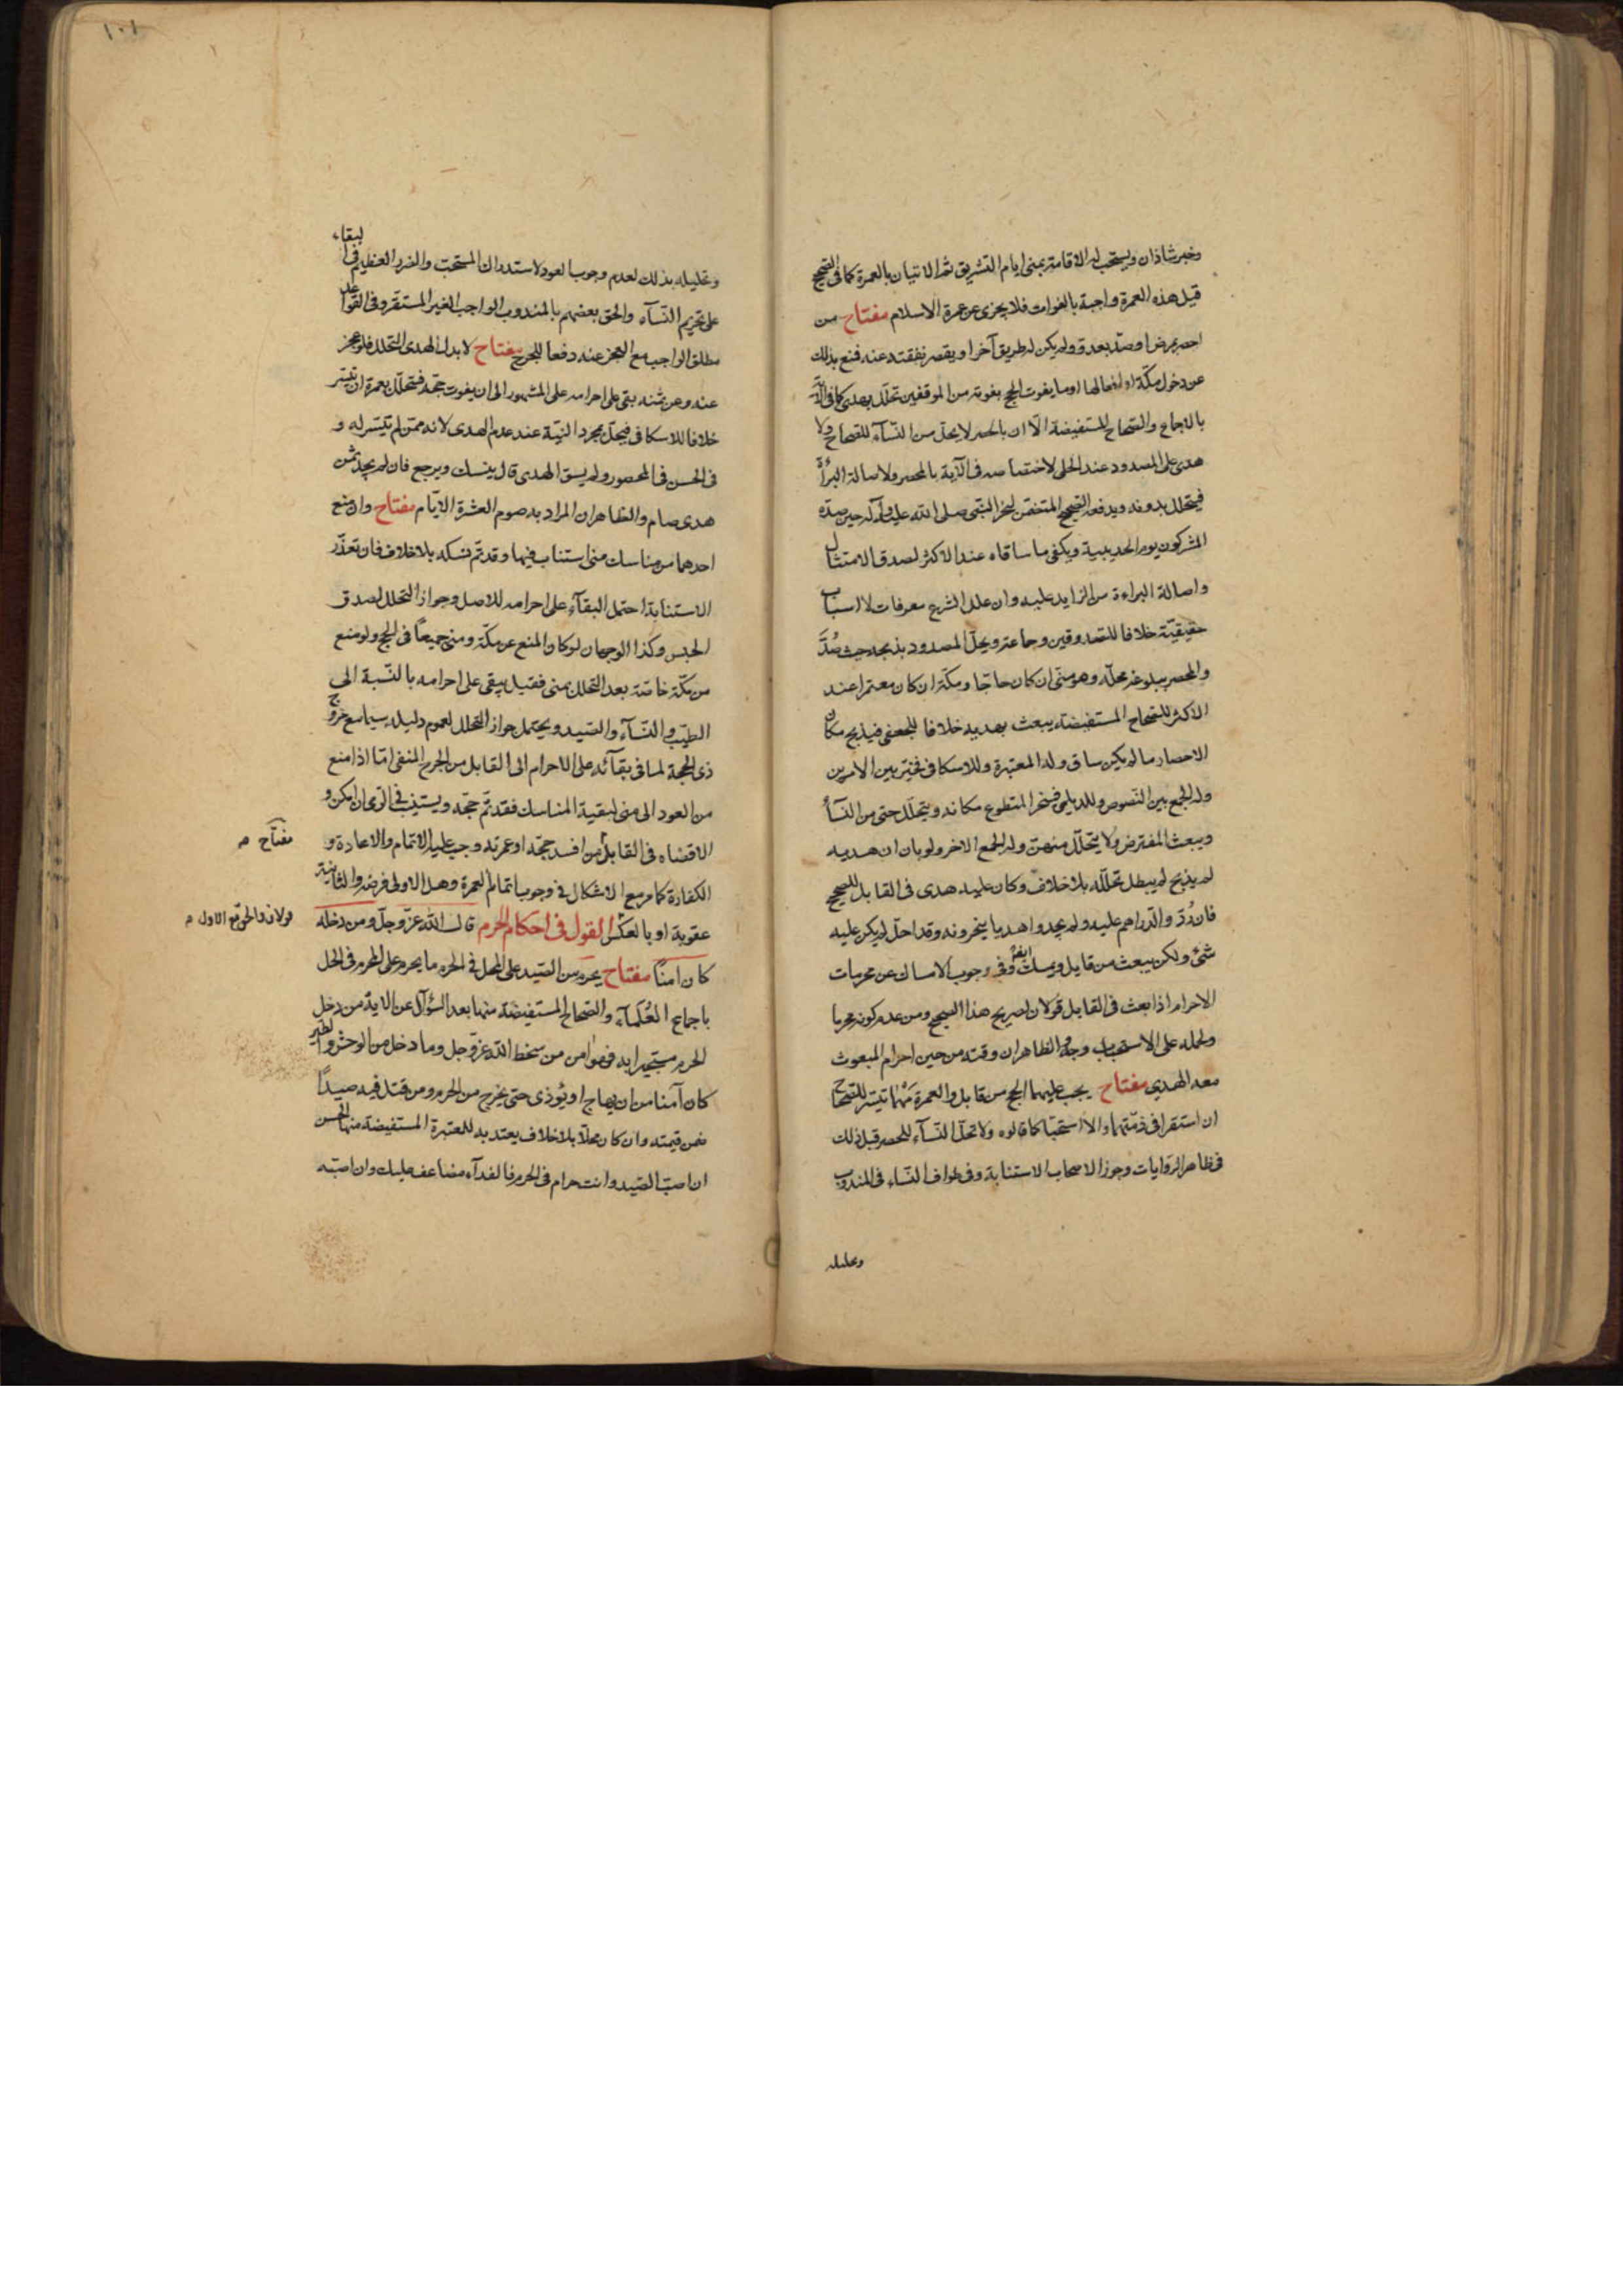 وخبر شاذان ويستحب له الاقامة بمنى ايام التشريق ثم الاتيان بالعمرة كما في الصحيح
قيل هذه العمرة واجبة بالفوات فلا يجزى عن عمرة الاسلام مفتاح من
احصر بمرض او صدّ بعدو ولم يكن له طريق آخر او يقصر نفقته عنه فمنع بذلك
عن دخول مكّة او افعالها او ما يفوت الحج بفوته من الموقفين تحلّل بهدى كما في الآية
بالاجماع والصحاح المستفيضة الّا ان بالحصر لا يحلّ من النّسآء للصحاح ولا
هدى على المصدود عند الحلى لاختصاصه في الآية بالمحصر ولاصالة البرأة
فيتحلل بدونه ويدفعه الصحيح المتضمن لنحر النبى صلى الله عليه وآله حين صدّه
المشركون يوم الحديبية ويكفى ما ساقاه عند الاكثر لصدق الامتثال
واصالة البراءة من الزايد عليه وان علل الشرع معرفات لا اسباب
حقيقيّة خلافا للصدوقين وجماعة ويحلّ المصدود بذبحه حيث صُدَّ
والمحصر ببلوغه محلّه وهو منى ان كان حاجّا ومكّة ان كان معتمرا عند
الاكثر للصحاح المستفيضة يبعث بهديه خلافا للجعفى فيذبح مكان
الاحصار ما لم يكن ساق وله المعتبرة وللاسكافى فخيّر بين الامرين
وله الجمع بين النّصوص وللديلمى فنحر المتطوع مكانه ويتحلّل حتى من النّسآء
ويبعث المفترض ولا يتحلّل منهنّ وله الجمع الاخر ولو بان ان هديه
لم يذبح لم يبطل تحلّله بلا خلاف وكان عليه هدى في القابل للصحيح
فان رُدّ والدّراهم عليه ولم يجدوا هديا ينحرونه وقد احلّ لم يكن عليه
شئ ولكن يبعث من قابل ويمسك ايضا وفي وجوب الامساك عن محرمات
الاحرام اذا بعث في القابل قولان لصريح هذا الصحيح ومن عدم كونه محرما
ولحمله على الاستحباب وجه والظاهر ان وقته من حين احرام المبعوث
معه الهدى مفتاح يجب عليهما الحج من قابل والعمرة مهما تيسّر للصحاح
ان استقرا في ذمّتهما والا استحبّا كما قالوه ولا تحلّ النّسآء للمحصر قبل ذلك
في ظاهر الرّوايات وجوز الاصحاب الاستنابة وفي طواف النّساء في المندوب
وتحليله
١٠١
وتحليله بذلك لعدم وجوب العود لاستدراك المستحبّ والضرر العظيم في البقاء
على تحريم النّسآء والحق بعضهم بالمندوب الواجب الغير المستقر وفي القواعد
مطلق الواجب مع العجز عنه دفعا للحرج مفتاح لا بدل لهدى التحلل فلو عجز
عنه وعن ثمنه بقى على احرامه على المشهور الى ان يفوت حجّه فتحلّل بعمرة ان تيسّر
خلافا للاسكافى فيحلّ بمجرد النيّة عند عدم الهدى لانه ممّن لم تيسّر له و
في الحسن في المحصور ولم يسق الهدى قال ينسك ويرجع فان لم يجد ثمن
هدى صام والظاهر ان المراد به صوم العشرة الايّام مفتاح وان منع
احدهما من مناسك منى استناب فيها وقد تمّ نسكه بلا خلاف فان تعذّر
الاستنابة احتمل البقآء على احرامه للاصل وجواز التحلل لصدق
الحبس وكذا الوجهان لو كان المنع عن مكّة ومنى جميعاً في الحج ولو منع
من مكّة خاصّة بعد التحلل بمنى فقيل يبقى على احرامه بالنّسبة الى
الطيّب والنّسآء والصّيد ويحتمل جواز التحلل لعموم دليله سيما مع خروج
ذى الحجة لما في بقآئه على الاحرام الى القابل من الحرج المنفى امّا اذا منع
من العود الى منى لبقية المناسك فقد تمّ حجّه ويستنيب في الرّمى ان امكن و
الا قضاه في القابل من افسد حجّه او عمرته وجب عليه الاتمام والاعادة و
مفتاح صح
الكفارة كما مر مع الاشكال في وجوب اتمام العمرة وهل الاولى فرضه والثانية
عقوبة او بالعكس القول في احكام الحرم قال الله عزّ وجلّ ومن دخله
قولان والحق مع الاول
كان آمناً مفتاح يحرم من الصّيد على المحل في الحرم ما يحرم على المحرم في الحل
باجماع العُلَمآء والصّحاح المستفيضة منها بعد السّؤال عن الاية من دخل
الحرم مستجيرا به فهو امن من سخط الله عزّ وجل وما دخل من الوحش والطير
كان آمنا من ان يهاج او يؤذى حتى يخرج من الحرم ومن قتل فيه صيداً
ضمن قيمته وان كان محلّا بلا خلاف يعتد به للمعتبرة المستفيضة منها الحسن
ان اصبت الصّيد وانت حرام في الحرم فالفدآء مضاعف عليك وان اصبته